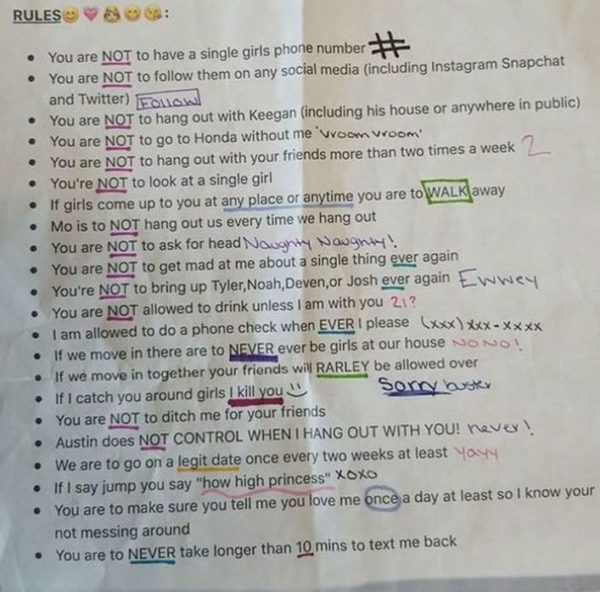 RULES😊💗👸😋😘:
• You are NOT to have a single girls phone number #
• You are NOT to follow them on any social media (including Instagram Snapchat
and Twitter) Follow
• You are NOT to hang out with Keegan (including his house or anywhere in public)
• You are NOT to go to Honda without me 'Vroom vroom'
• You are NOT to hang out with your friends more than two times a week 2
• You're NOT to look at a single girl
• If girls come up to you at any place or anytime you are to WALK away
• Mo is to NOT hang out us every time we hang out
• You are NOT to ask for head Naughty Naughty!
• You are NOT to get mad at me about a single thing ever again
• You're NOT to bring up Tyler,Noah,Deven,or Josh ever again Ewwey
• You are NOT allowed to drink unless I am with you 21?
• I am allowed to do a phone check when EVER I please (xxx) xxx-xxxx
• If we move in there are to NEVER ever be girls at our house NONO!
• If we move in together your friends will RARLEY be allowed over
• If I catch you around girls I kill you Sorry buster
• You are NOT to ditch me for your friends
• Austin does NOT CONTROL WHEN I HANG OUT WITH YOU! never!
• We are to go on a legit date once every two weeks at least Yayy
• If I say jump you say "how high princess" xoxo
• You are to make sure you tell me you love me once a day at least so I know your
not messing around
• You are to NEVER take longer than 10 mins to text me back